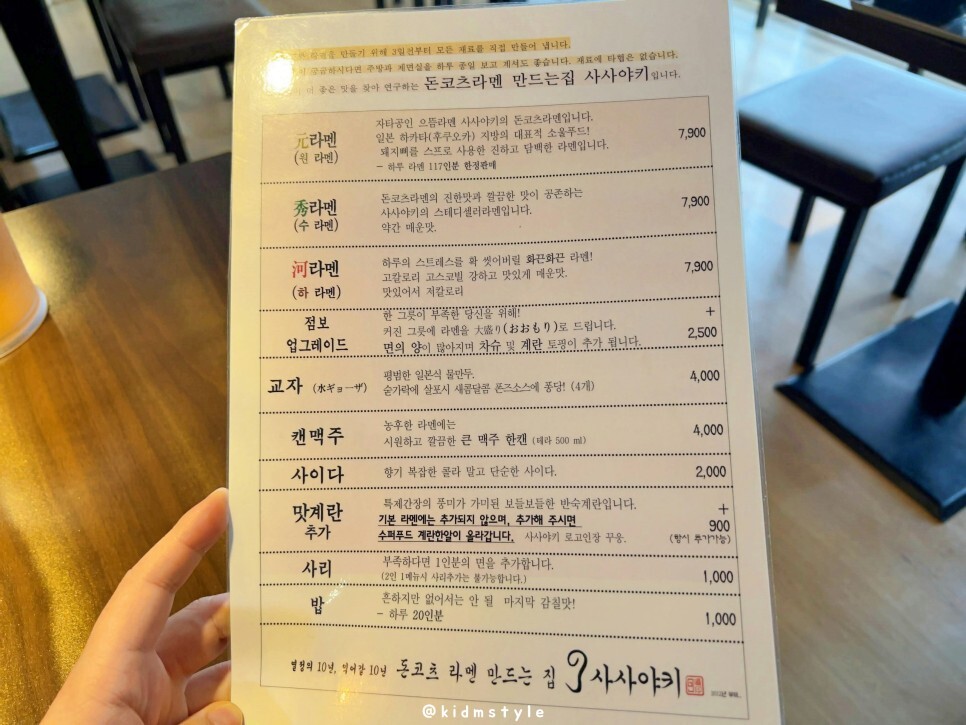 만들기 위해 3일전부터 모든 재료를 직접 만들어 냅니다.
궁금하시다면 주방과 제면실을 하루 종일 보고 계셔도 좋습니다. 재료에 타협은 없습니다.
더 좋은 맛을 찾아 연구하는 돈코츠라멘 만드는집 사사야키입니다.
元라멘
(원 라멘)
자타공인 으뜸라멘 사사야키의 돈코츠라멘입니다.
일본 하카타(후쿠오카) 지방의 대표적 소울푸드!
돼지뼈를 스프로 사용한 진하고 담백한 라멘입니다.
- 하루 라멘 117인분 한정판매
7,900
秀라멘
(수 라멘)
돈코츠라멘의 진한맛과 깔끔한 맛이 공존하는
사사야키의 스테디셀러라멘입니다.
약간 매운맛.
7,900
河라멘
(하 라멘)
하루의 스트레스를 확 씻어버릴 화끈화끈 라멘!
고칼로리 고스코빌 강하고 맛있게 매운맛.
맛있어서 저칼로리
7,900
점보
업그레이드
한 그릇이 부족한 당신을 위해!
커진 그릇에 라멘을 大盛り(おおもり)로 드립니다.
면의 양이 많아지며 차슈 및 계란 토핑이 추가 됩니다.
+
2,500
교자 (水ギョーザ)
평범한 일본식 물만두.
숟가락에 살포시 새콤달콤 폰즈소스에 퐁당! (4개)
4,000
캔맥주
농후한 라멘에는
시원하고 깔끔한 큰 맥주 한캔 (테라 500 ml)
4,000
사이다
향기 복잡한 콜라 말고 단순한 사이다.
2,000
맛계란
추가
특제간장의 풍미가 가미된 보들보들한 반숙계란입니다.
기본 라멘에는 추가되지 않으며, 추가해 주시면
수퍼푸드 계란한알이 올라갑니다. 사사야키 로고인장 꾸욱.
+
900
(항시 추가가능)
사리
부족하다면 1인분의 면을 추가합니다.
(2인 1메뉴시 사리추가는 불가능합니다.)
1,000
밥
흔하지만 없어서는 안 될 마지막 감칠맛!
- 하루 20인분
1,000
열정의 10년, 익어갈 10년 돈코츠 라멘 만드는 집 사사야키
@kidmstyle